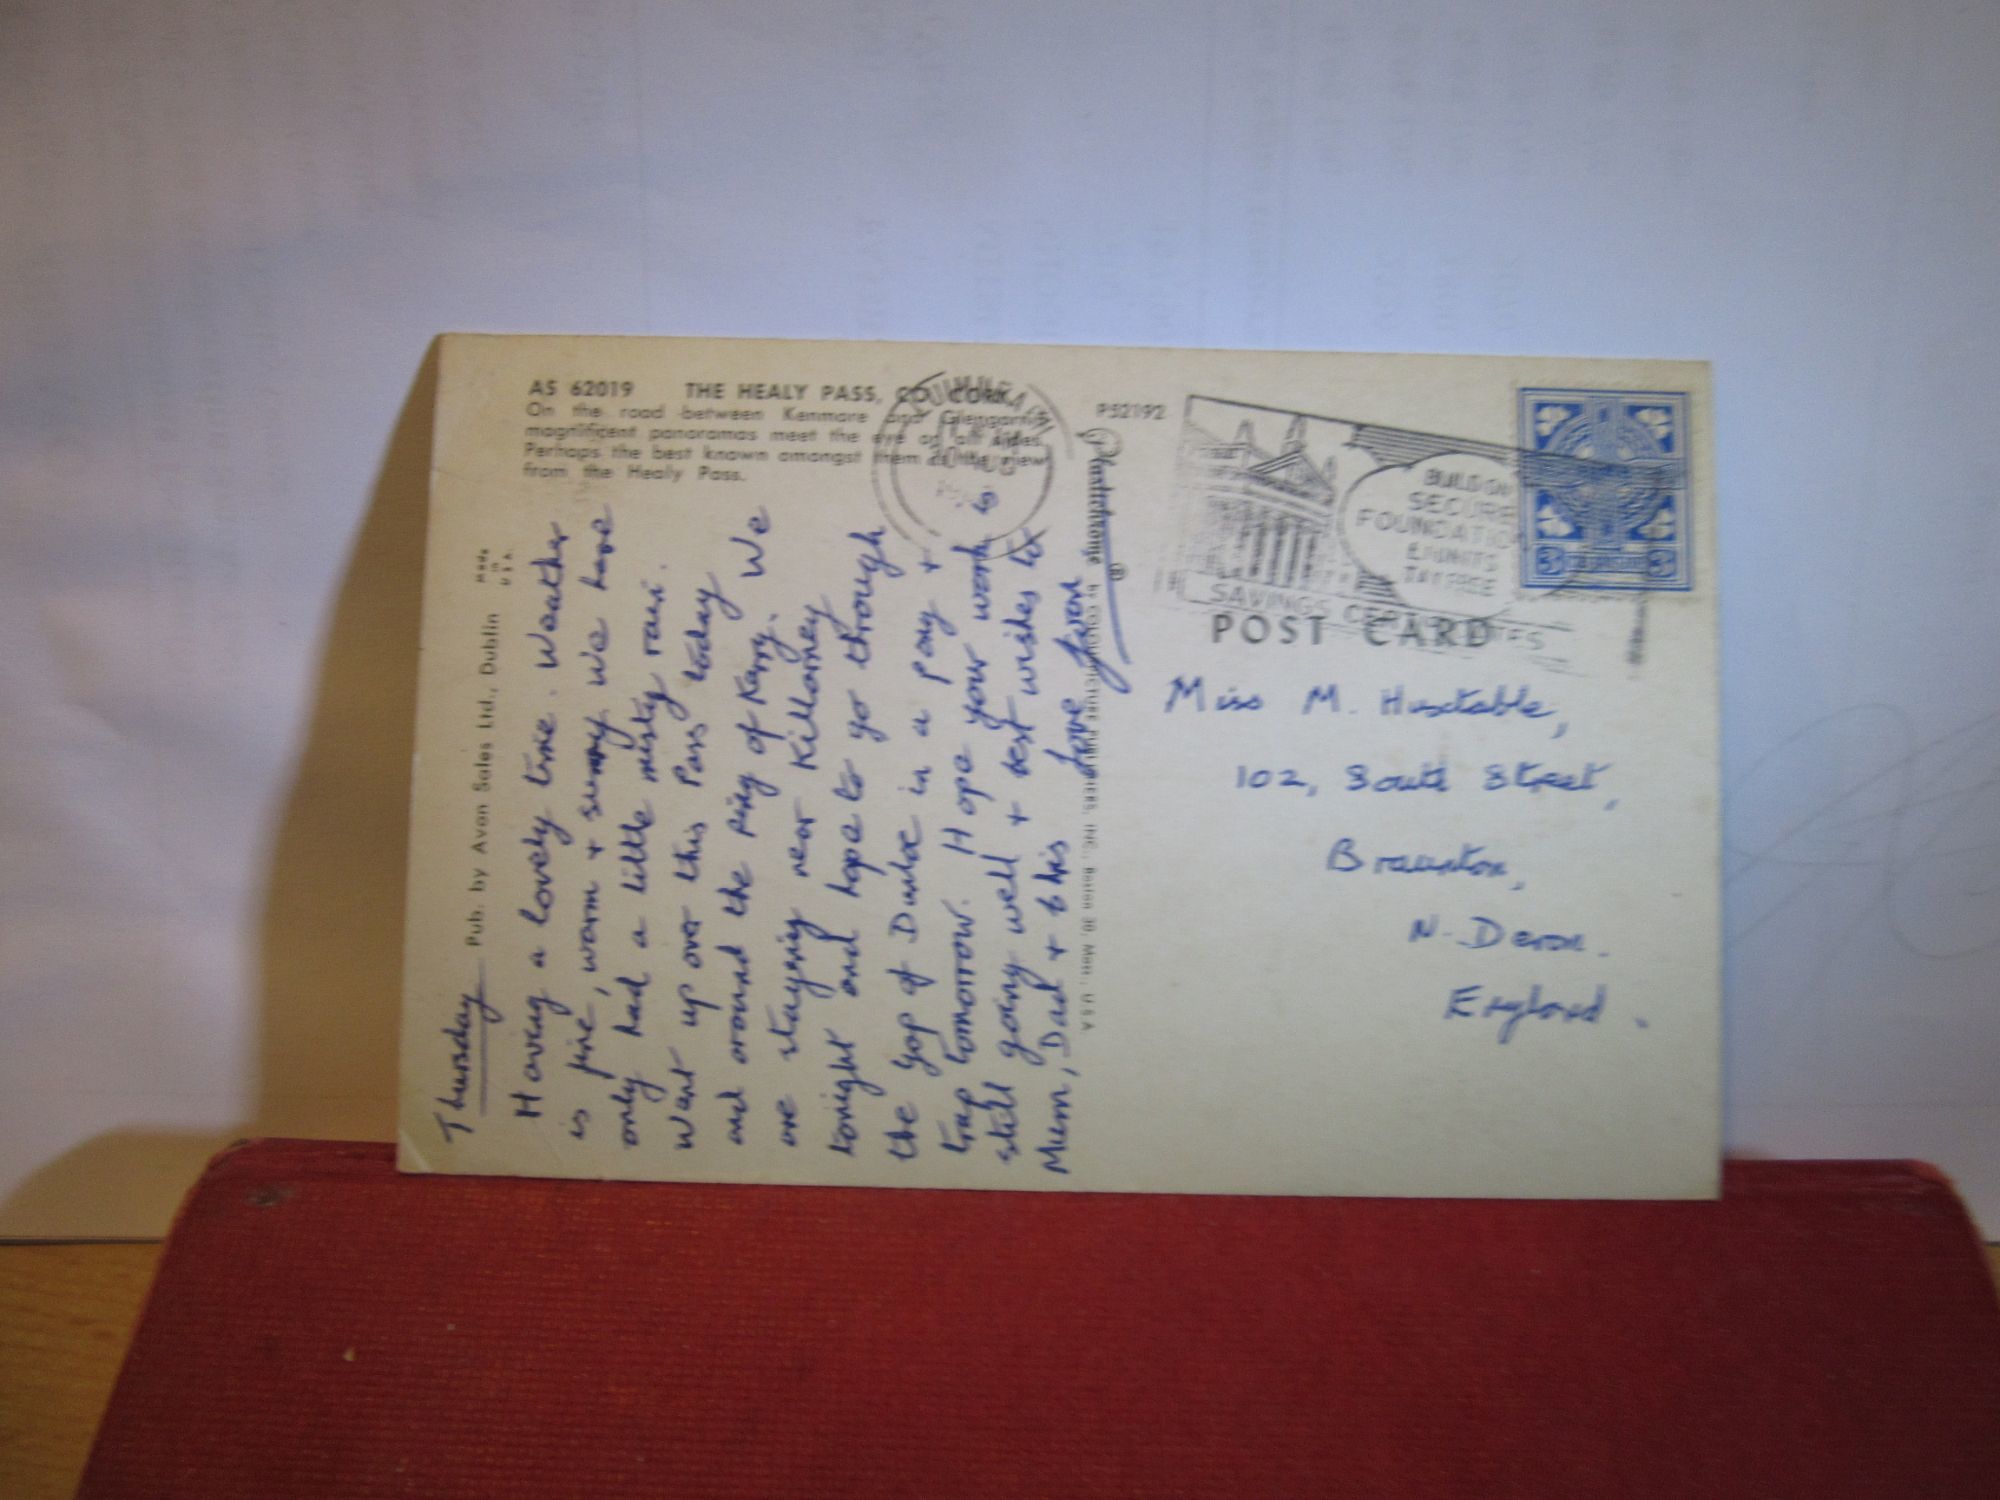 AS 62019 THE HEALY PASS, CO. CORK
On the road between Kenmare and Glengarriff
magnificent panoramas meet the eye on all sides.
Perhaps the best known amongst them is the view
from the Healy Pass.
Pub. by Avon Sales Ltd., Dublin
Made
in
U.S.A.
Thursday
Having a lovely time. Weather
is fine, warm + sunny. We have
only had a little misty rain.
Went up over this Pass today
and around the ring of Kerry. We
are staying near Killarney
tonight and hope to go through
the Gap of Dunloe in a pony +
trap tomorrow. Hope your work is
still going well + best wishes to
Mum, Dad +
Love
P52192
Plastichrome ® by COLOURPICTURE PUBLISHERS, INC., Boston 30, Mass., U.S.A.
BUILD ON
SECURE
FOUNDATION
TAX FREE
SAVINGS CERTIFICATES
3 3
POST CARD
Miss M. Huxtable,
102, South Street,
Braunton,
N. Devon.
England.